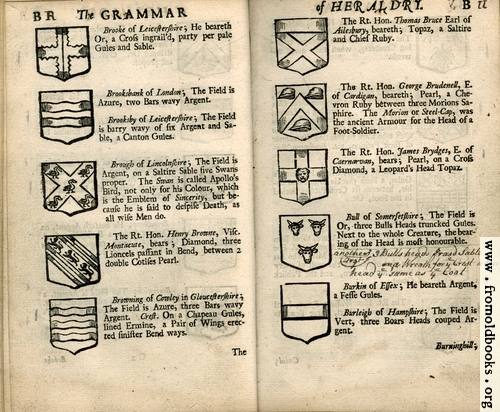 BR The GRAMMAR
Brooke of Leicestershire; He beareth
Or, a Cross ingrail'd, party per pale
Gules and Sable.
Brooksbank of London; The Field is
Azure, two Bars wavy Argent.
Brooksby of Leicestershire; The Field
is barry wavy of six Argent and Sa-
ble, a Canton Gules.
Brough of Lincolnshire; The Field is
Argent, on a Saltire Sable five Swans
proper. The Swan is called Apollo's
Bird, not only for his Colour, which
is the Emblem of Sincerity, but be-
cause he is said to despise Death, as
all wise Men do.
The Rt. Hon. Henry Browne, Visc.
Montacute, bears; Diamond, three
Lioncels passant in Bend, between 2
double Cotises Pearl.
Browning of Cowley in Gloucestershire;
The Field is Azure, three Bars wavy
Argent. Crest. On a Chapeau Gules,
lined Ermine, a Pair of Wings erec-
ted sinister Bend ways.
The
of HERALDRY. BU
The Rt. Hon. Thomas Bruce Earl of
Ailesbury, beareth; Topaz, a Saltire
and Chief Ruby.
The Rt. Hon. George Brudenell, E.
of Cardigan, beareth; Pearl, a Che-
vron Ruby between three Morions Sa-
phire. The Morion or Steel-Cap, was
the ancient Armour for the Head of a
Foot-Soldier.
The Rt. Hon. James Brydges, E. of
Caernarvan, bears; Pearl, on a Cross
Diamond, a Leopard's Head Topaz.
Bull of Somersetshire; The Field is
Or, three Bulls Heads truncked Gules.
Next to the whole Creature, the bear-
ing of the Head is most honourable.
another 3 Bulls heads
head Same as Coat
Burkin of Essex; He beareth Argent,
a Fesse Gules.
Burleigh of Hampshire; The Field is
Vert, three Boars Heads couped Ar-
gent.
Burninghill;
© www.fromoldbooks.org